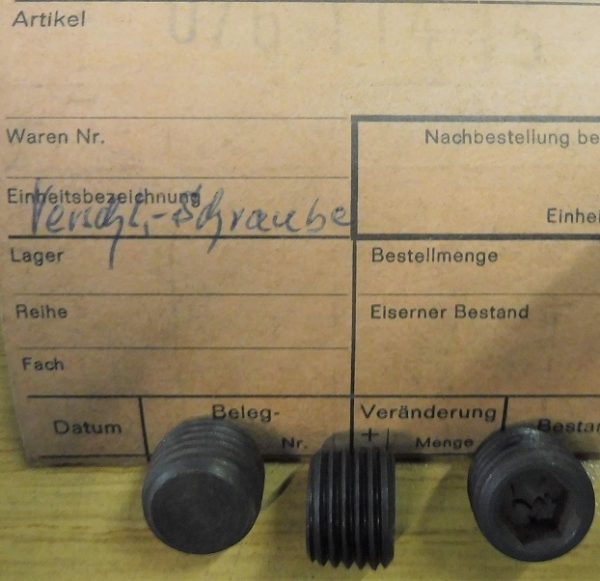 Artikel
Waren Nr.
Nachbestellung be
Einheitsbezeichnung
Verschl.-Schraube
Einhei
Lager
Bestellmenge
Reihe
Eiserner Bestand
Fach
Datum
Beleg-
Nr.
Veränderung
+
Menge
Bestan